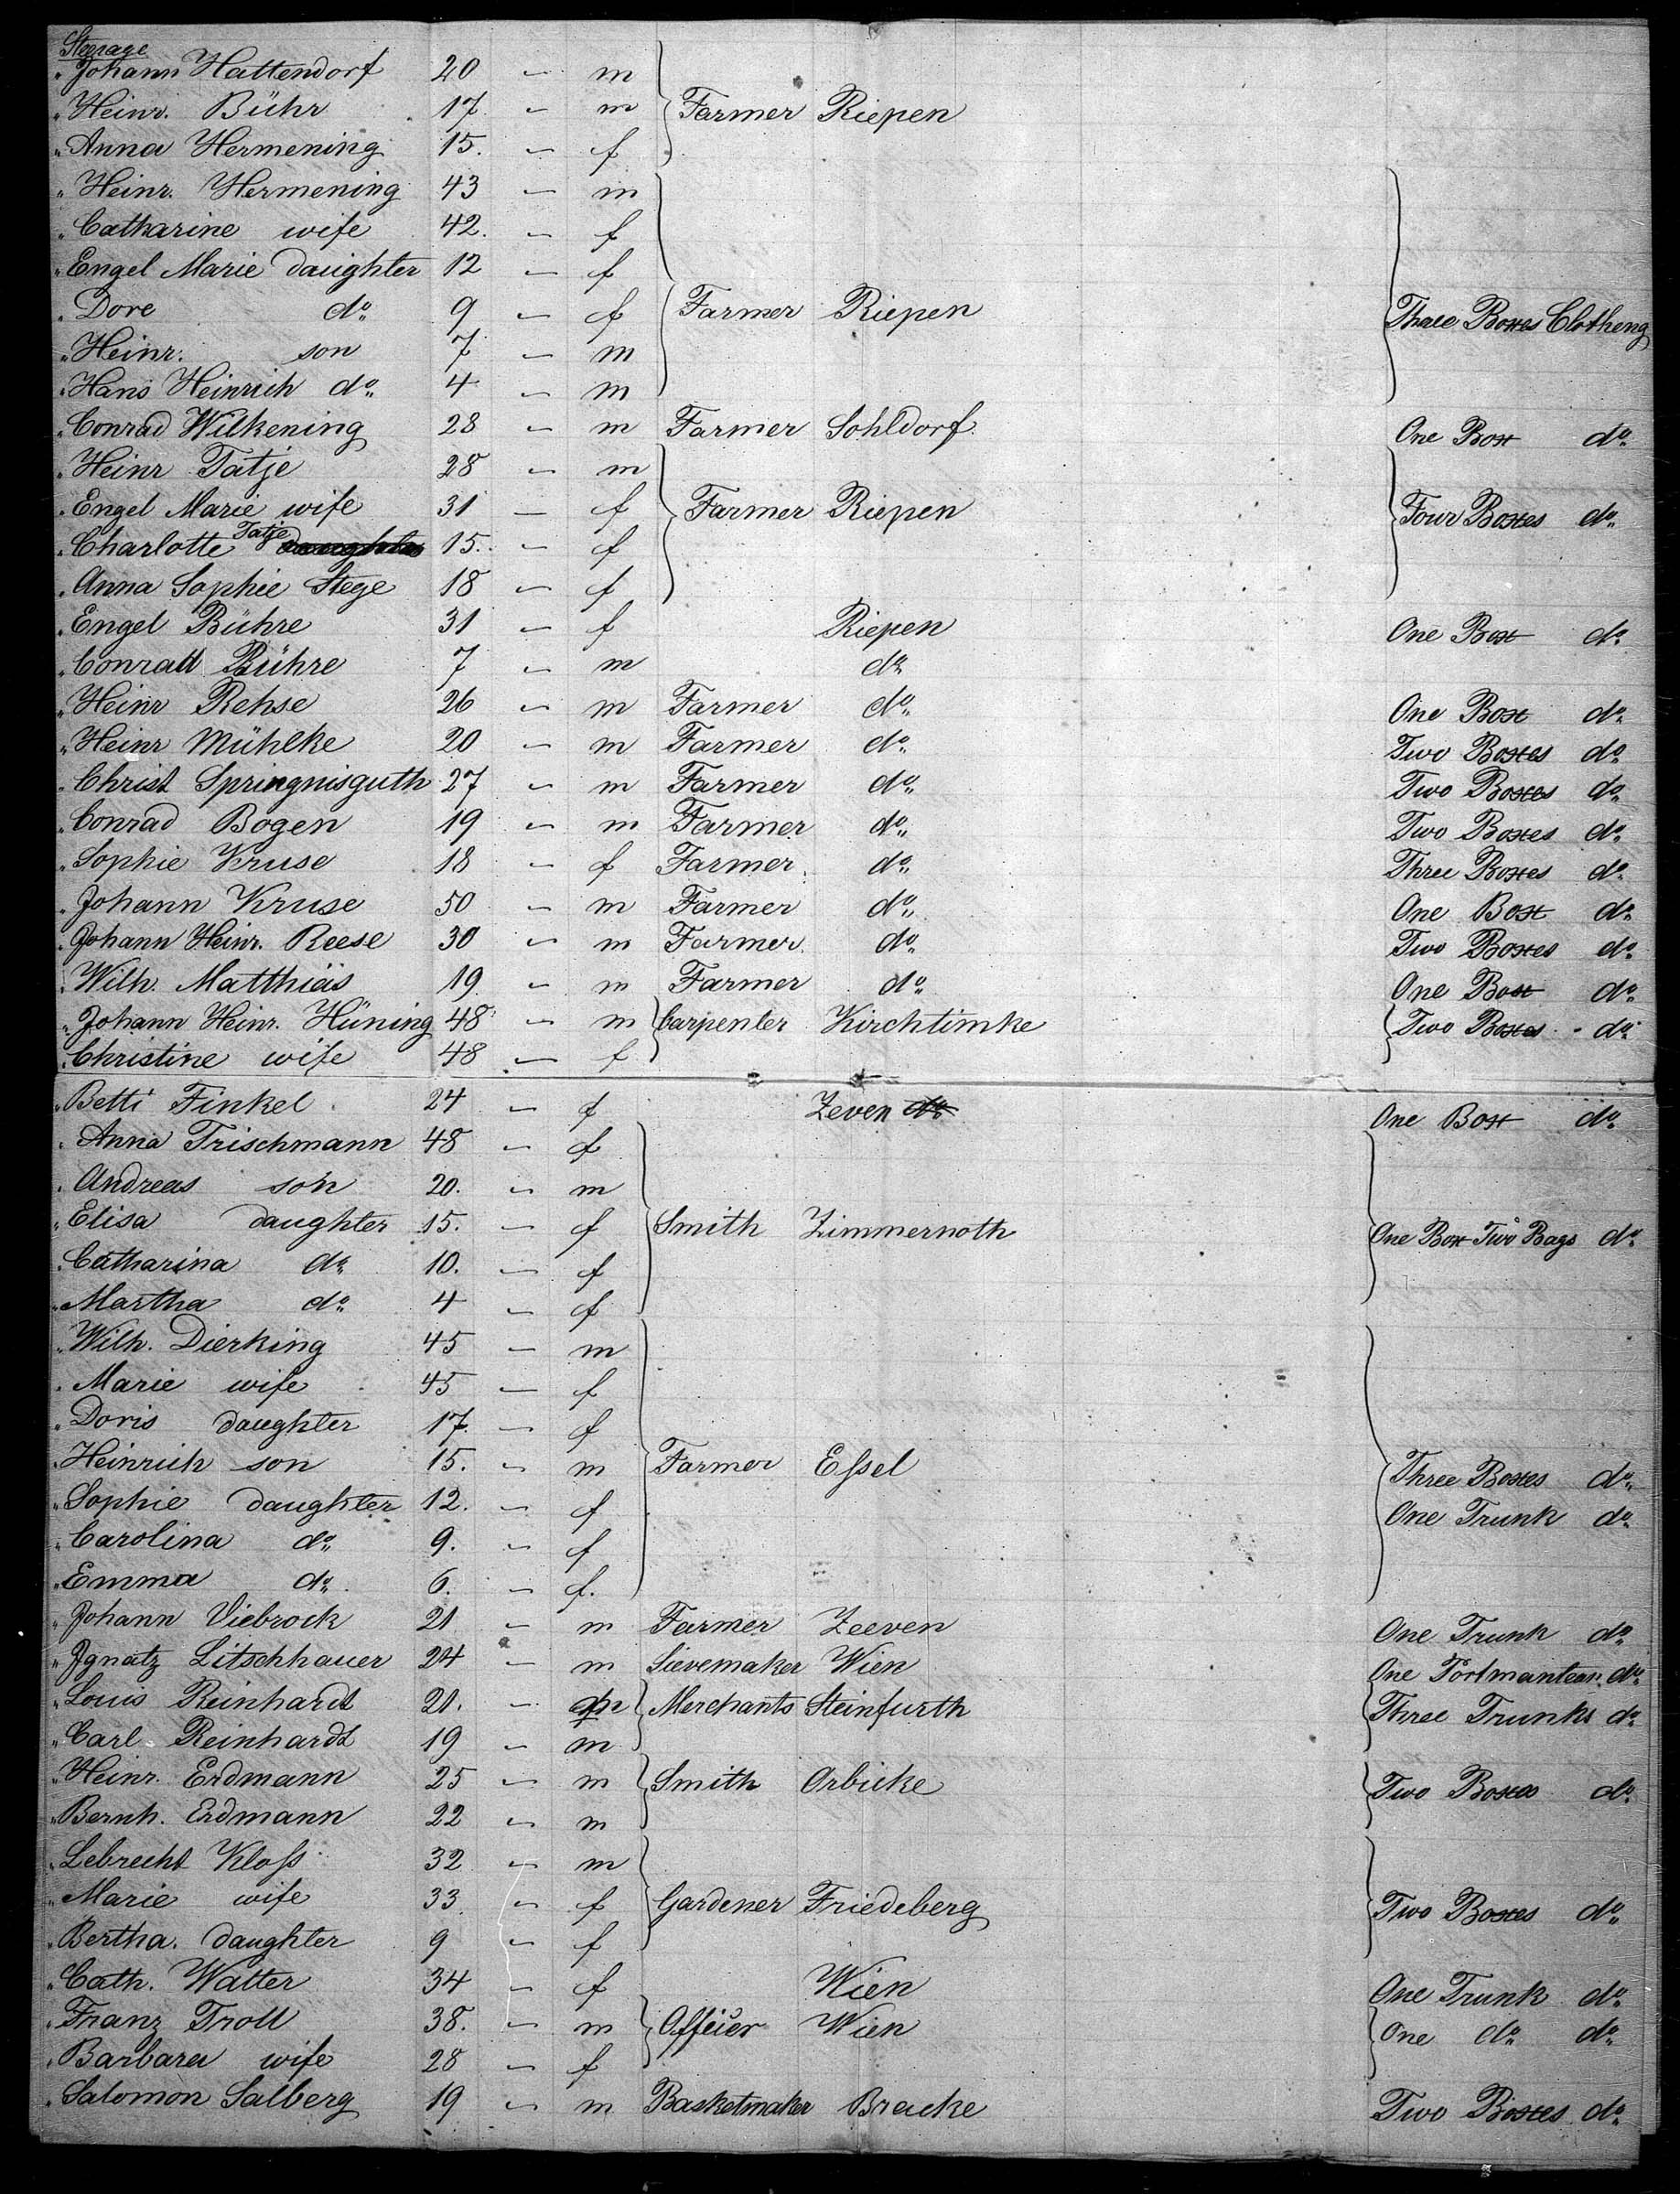 Steerage
" Johann Hattendorf 20 – m
" Heinr. Bühr 17 – m Farmer Riepen
" Anna Hermening 15. – f
" Heinr. Hermening 43 – m
" Catharine wife 42. – f
" Engel Marie daughter 12 – f
" Dore do. 9 – f Farmer Riepen Three Boxes Clotheng
" Heinr. son 7 – m
" Hans Heinrich do. 4 – m
" Conrad Wilkening 28 – m Farmer Sohldorf. One Box do.
" Heinr Tatje 28 – m
" Engel Marie wife 31 – f Farmer Riepen Four Boxes do.
" Charlotte Tatje daughter 15. – f
" Anna Sophie Stege 18 – f
" Engel Bühre 31 – f Riepen One Box do.
" Conrad Bühre 7 – m do.
" Heinr Rehse 26 – m Farmer do. One Box do.
" Heinr Mühlke 20 – m Farmer do. Two Boxes do.
" Christ Springnisguth 27 – m Farmer do. Two Boxes do.
" Conrad Bogen 19 – m Farmer do. Two Boxes do.
" Sophie Kruse 18 – f Farmer. do. Three Boxes do.
" Johann Kruse 50 – m Farmer do. One Box do.
" Johann Heinr. Reese 30 – m Farmer. do. Two Boxes do.
" Wilh. Matthiäs 19. – m Farmer do. One Box do.
" Johann Heinr. Hüning 48 – m Carpenter Kirchtimke Two Boxes do.
" Christine wife 48 – f
" Betti Finkel 24 – f Zeven do. One Box do.
" Anna Trischmann 48 – f
" Andreas son 20. – m
" Elisa daughter 15. – f Smith Zimmernoth One Box Two Bags do.
" Catharina do. 10. – f
" Martha do. 4 – f
" Wilh. Dierking 45 – m
" Marie wife 45 – f
" Doris daughter 17. – f
" Heinrich son 15. – m Farmer Eſsel Three Boxes do.
" Sophie daughter 12. – f One Trunk do.
" Carolina do. 9. – f
" Emma do. 6. – f.
" Johann Viebrock 21 – m Farmer Zeeven One Trunk do.
" Ignatz Litschhauer 24 – m Sievemaker Wien One Portmanteau do.
" Louis Reinhardt 21. – m Merchants Steinfurth Three Trunks do.
" Carl Reinhardt 19 – m
" Heinr. Erdmann 25 – m Smith Orbicke Two Boxes do.
" Bernh. Erdmann 22 – m
" Lebrecht Kloſs 32 – m
" Marie wife 33. – f Gardener Friedeberg Two Boxes do.
" Bertha. daughter 9 – f
" Cath. Walter 34 – f Wien One Trunk do.
" Franz Troll 38. – m Officier Wien One do. do.
" Barbara wife 28 – f
" Salomon Salberg 19 – m Basketmaker Bracke Two Boxes do.